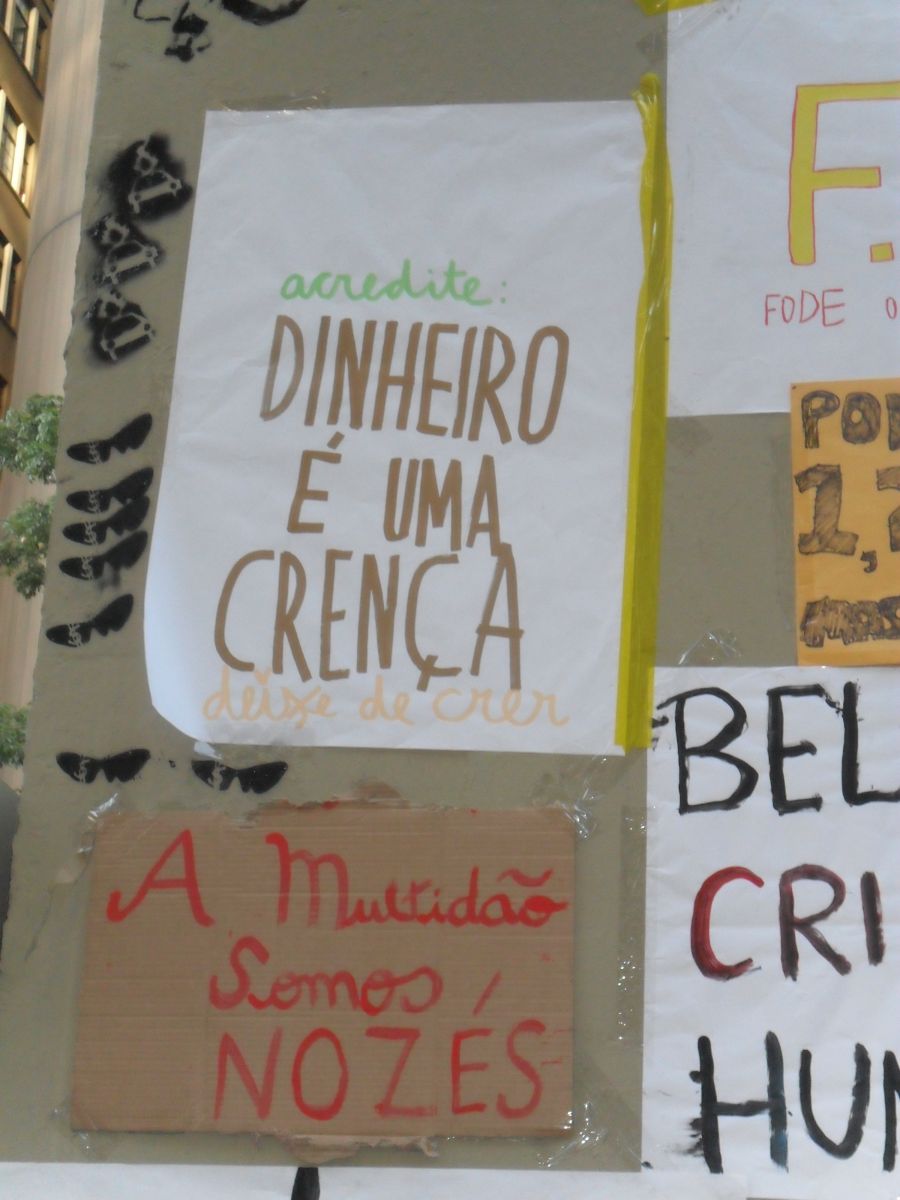 acredite:
DINHEIRO
É UMA
CRENÇA
deixe de crer
F.
FODE O
1,
A Multidão
Somos
NOZÉS
BEL
CRI
HUN